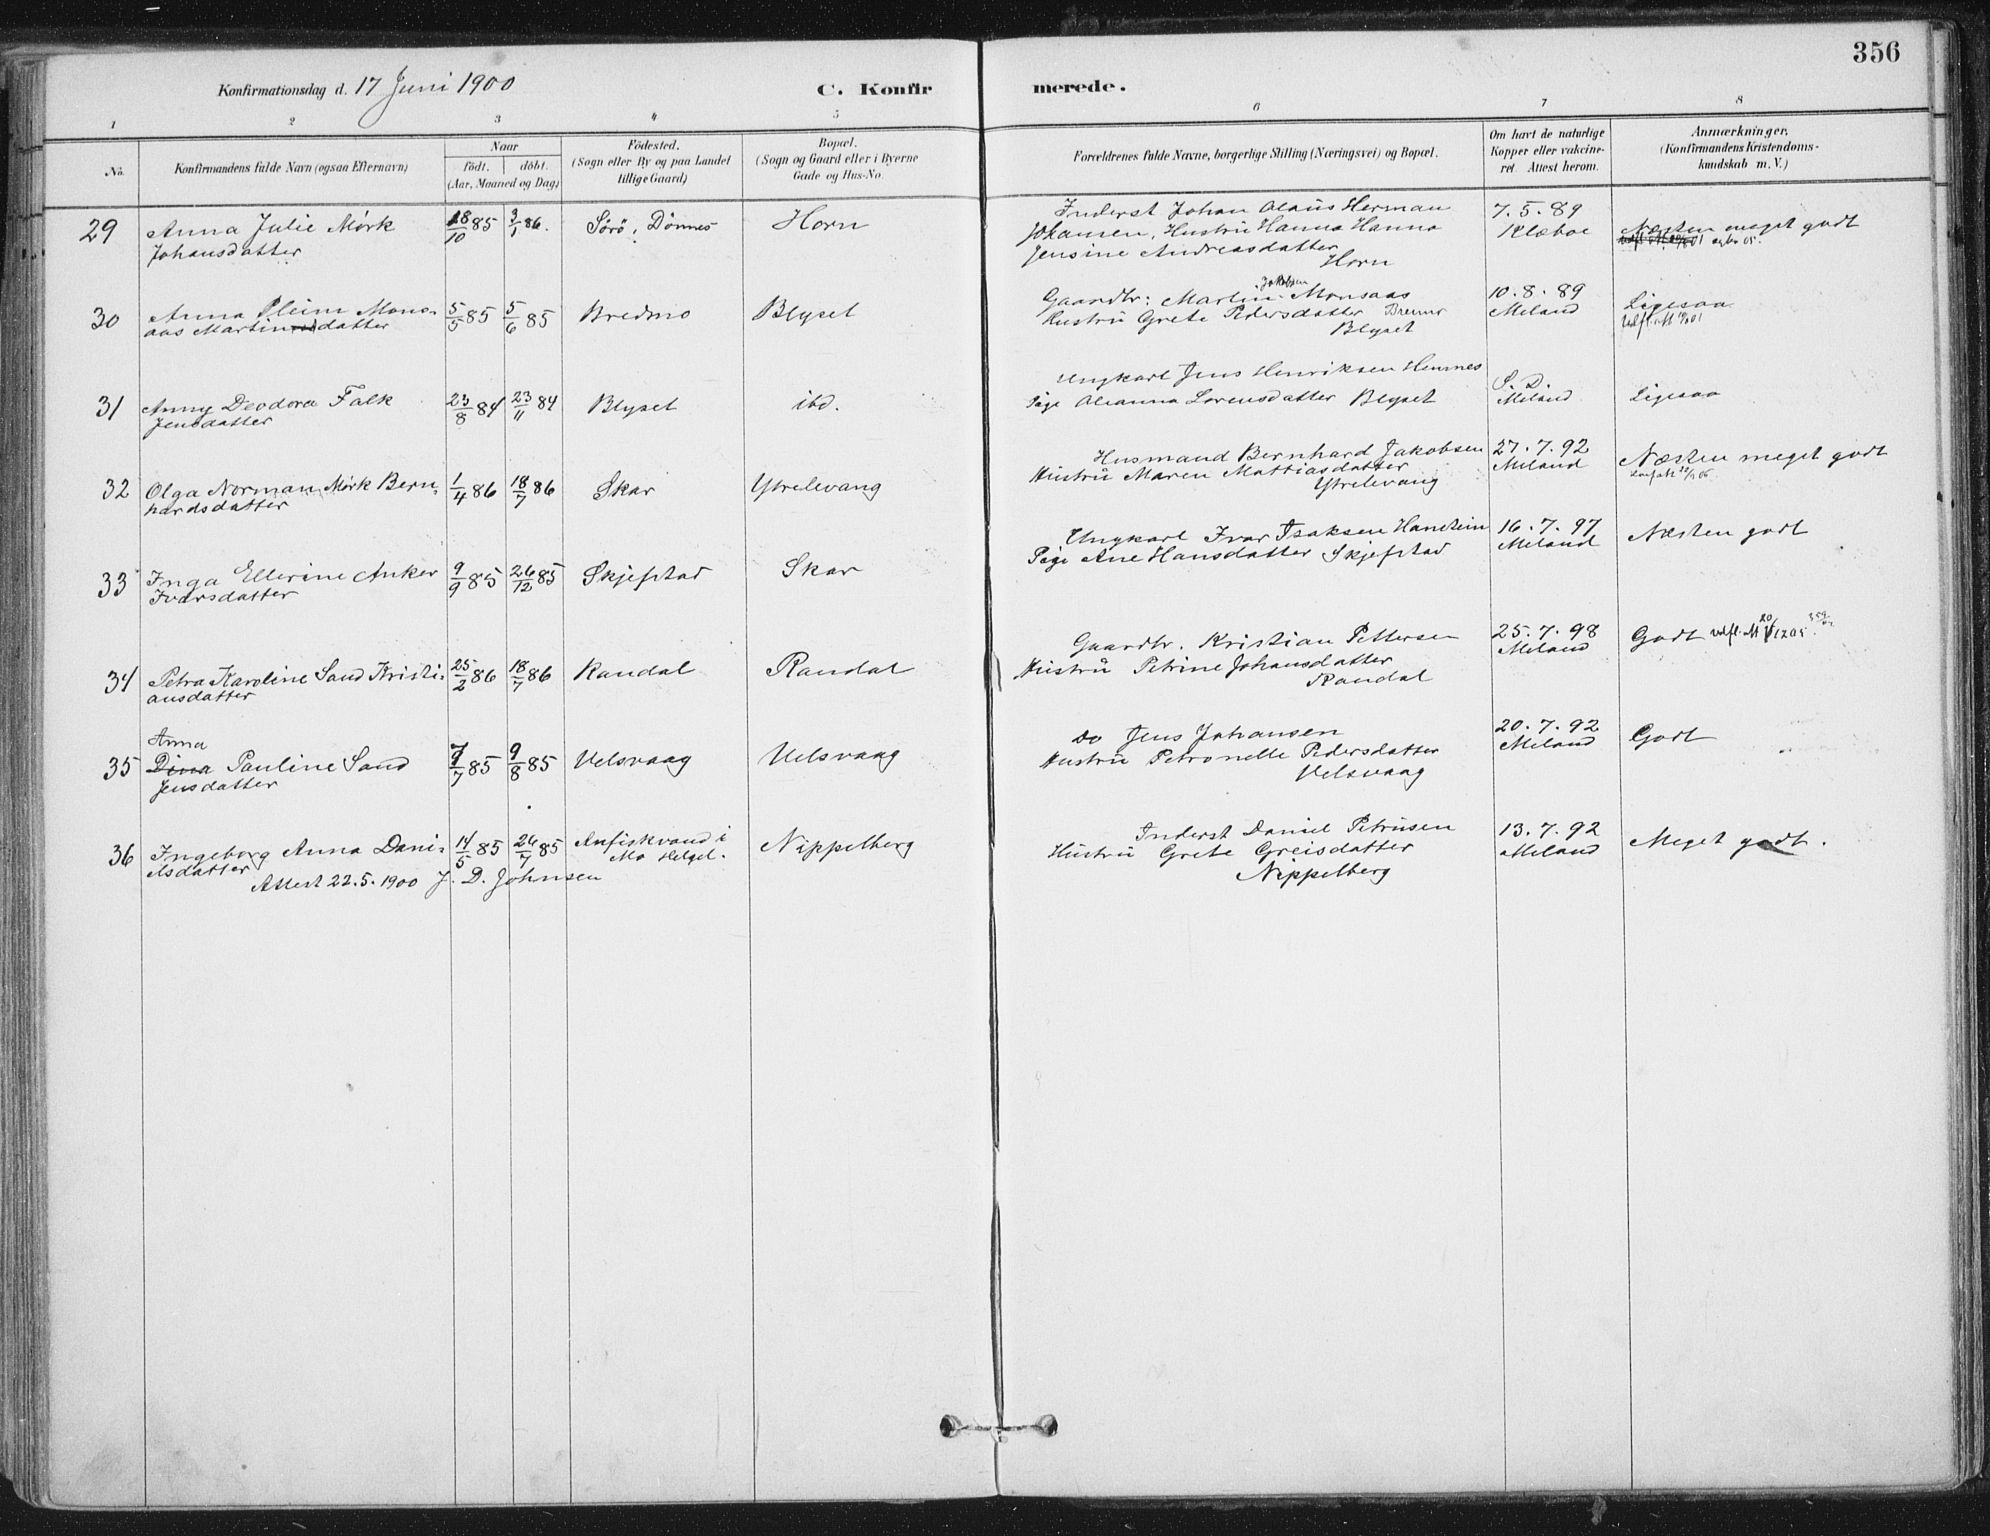 356
Konfirmationsdag d. 17 Juni 1900
C. Konfirmerede.
1 2 3 4 5 6 7 8
No.
Konfirmandens fulde Navn (ogsaa Efternavn)
Naar
födt. döbt.
(Aar, Maaned og Dag)
Födested.
(Sogn eller By og paa Landet
tillige Gaard)
Bopæl.
(Sogn og Gaard eller i Byerne
Gade og Hus-No.
Forældrenes fulde Navne, borgerlige Stilling (Næringsvei) og Bopæl.
Om havt de naturlige
Kopper eller vakcine-
ret. Attest herom.
Anmærkninger.
(Konfirmandens Kristendoms-
kundskab m. V.)
29 Anna Julie Mørk
Johansdatter
18/10 85 3/1 86. Sörö, Dönnes Horn
Inderst Johan Olaüs Herman
Johansen, Hustrü Hanna Hanna
Jensine Andreasdatter
Horn
7.5.89
Klæboe
Næsten meget godt
30 Anna Pleim Mons-
aas Martinusdatter
5/5 85 5/6 85 Bredmo Blyset
Gaardbr: Martin Jakobsen Monsaas
Hustrü Grete Pedersdatter
Blyset
10.8.89
Meland
Ligesaa
31 Anny Deodora Falk
Jensdatter
23/8 84 23/11 84 Blyset ibd.
Ungkarl Jens Henriksen Hemnes
Pige Oleanna Lorensdatter Blyset
S. D.
Meland
Ligesaa
32 Olga Norman Mörk Bern-
hardsdatter
1/4 86 18/7 86 Skar Ytrelevang
Husmand Bernhard Jakobsen
Hustrü Maren Mattiasdatter
Ytrelevang
27.7.92
Meland
Næsten meget godt
33 Inga Ellerine Anker
Ivarsdatter
9/9 85 26/12 85 Skjefstad Skar
Ungkarl Ivar Isaksen Hanstein
Pige Ane Hansdatter Skjefstad
16.7.97
Meland
Næsten godt
34 Petra Karoline Sand Kristi-
ansdatter
25/2 86 18/7 86 Randal Randal
Gaardbr. Kristian Pettersen
Hustrü Petrine Johansdatter
Randal
25.7.98
Meland
Godt
35 Anna
Dina Pauline Sand
Jensdatter
7/7 85 9/8 85 Uelsvaag Uelsvaag
Do Jens Johansen
Hustrü Petronelle Pedersdatter
Uelsvaag
20.7.92
Meland
Godt
36 Ingeborg Anna Dani-
elsdatter
Attest 22.5.1900 J. D. Johnsen
14/5 85 26/7 85 Anfiskvand i
Mo Helgel. Nippelberg
Inderst Daniel Petrüsen
Hüstrü Grete Greisdatter
Nippelberg
13.7.92
Meland
Meget godt.